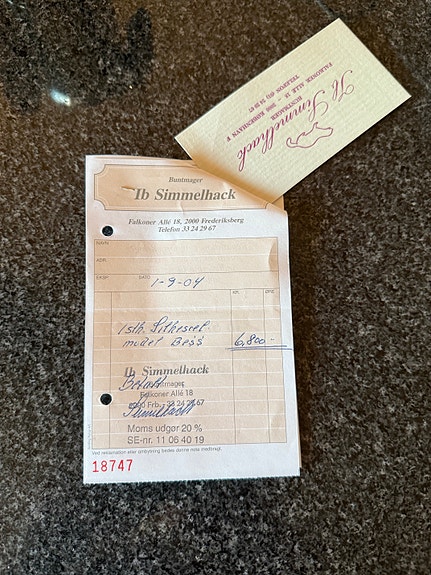 Buntmager
Ib Simmelhack
Falkoner Allé 18, 2000 Frederiksberg
Telefon 33 24 29 67
NAVN
ADR.
EKSP. DATO 1-9-04
KR. ØRE
1 stk.
model Bess 6,800 -
Ib Simmelhack
Betalt
Buntmager
Falkoner Allé 18
2000 Frb. - 33 24 29 67
Simmelhack
Moms udgør 20 %
SE-nr. 11 06 40 19
Ved reklamation eller ombytning bedes denne nota medbragt.
18747
Ib Simmelhack
BUNTMAGER
FALKONER ALLE 18 - 2000 KØBENHAVN F